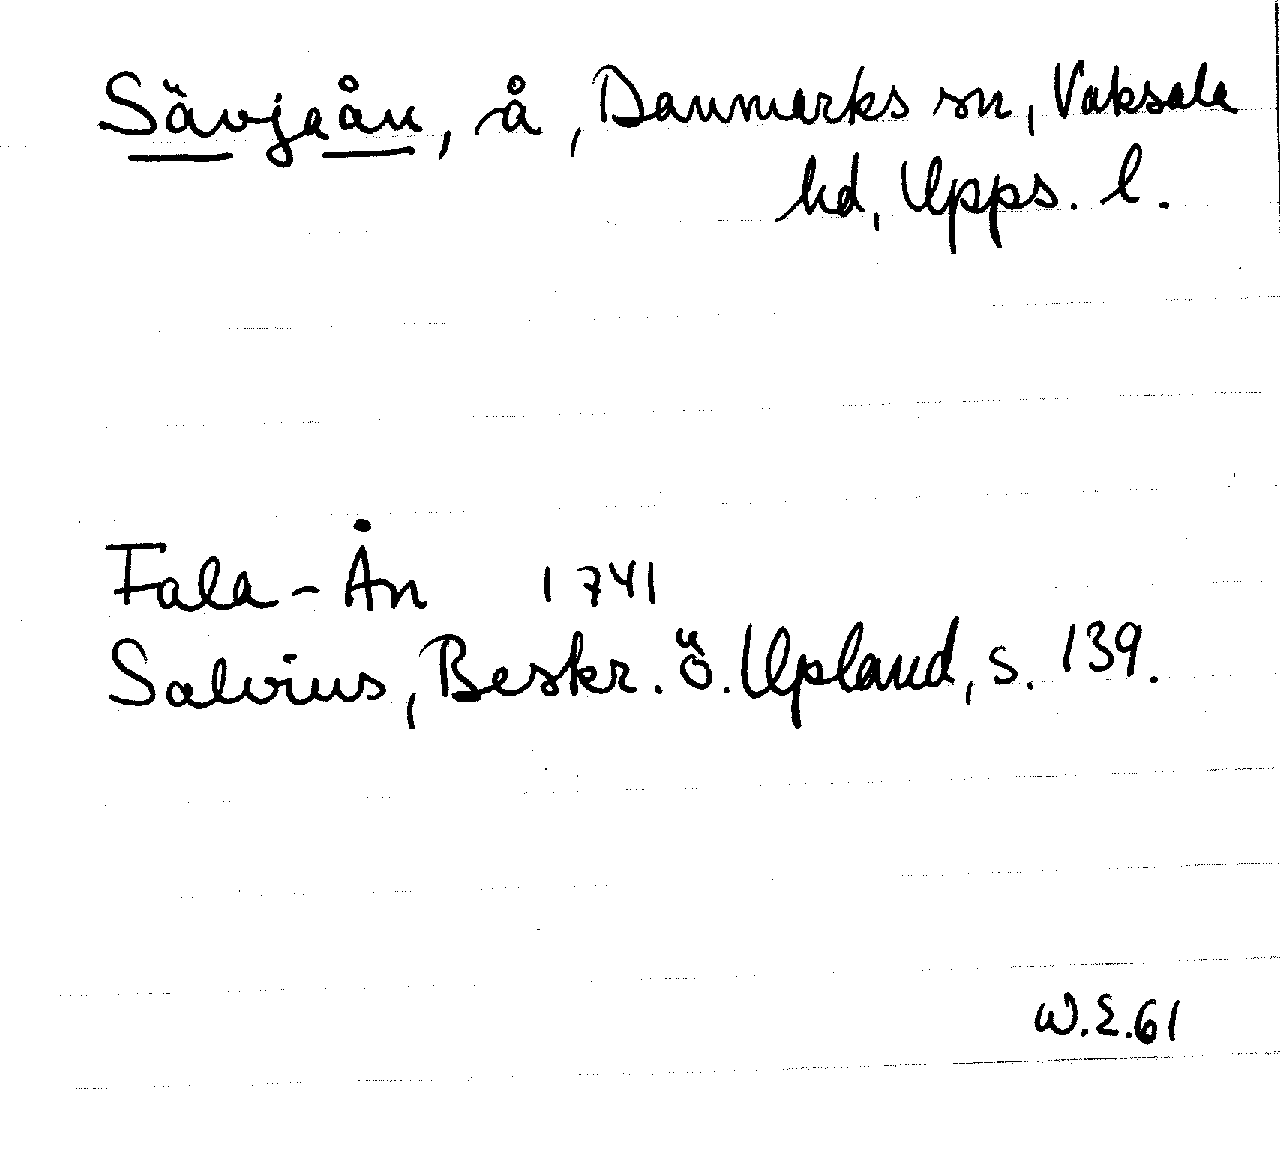 Sävjaån, å, Danmarks sn, Vaksala
hd, Upps. l.
Fala-Ån 1741
Salvius, Beskr. ö. Upland, s. 139.
W.E.61